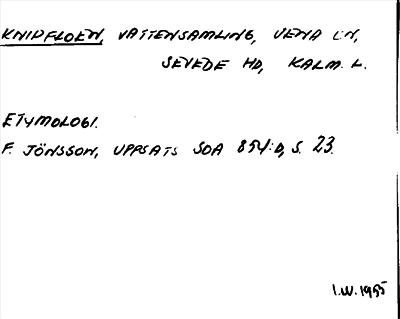 KNIPFLOEN, VATTENSAMLING, VENA SN,
SEVEDE HD, KALM. L.
ETYMOLOGI.
F. JÖNSSON, UPPSATS SOA 854:D, S. 23.
I.W. 1955